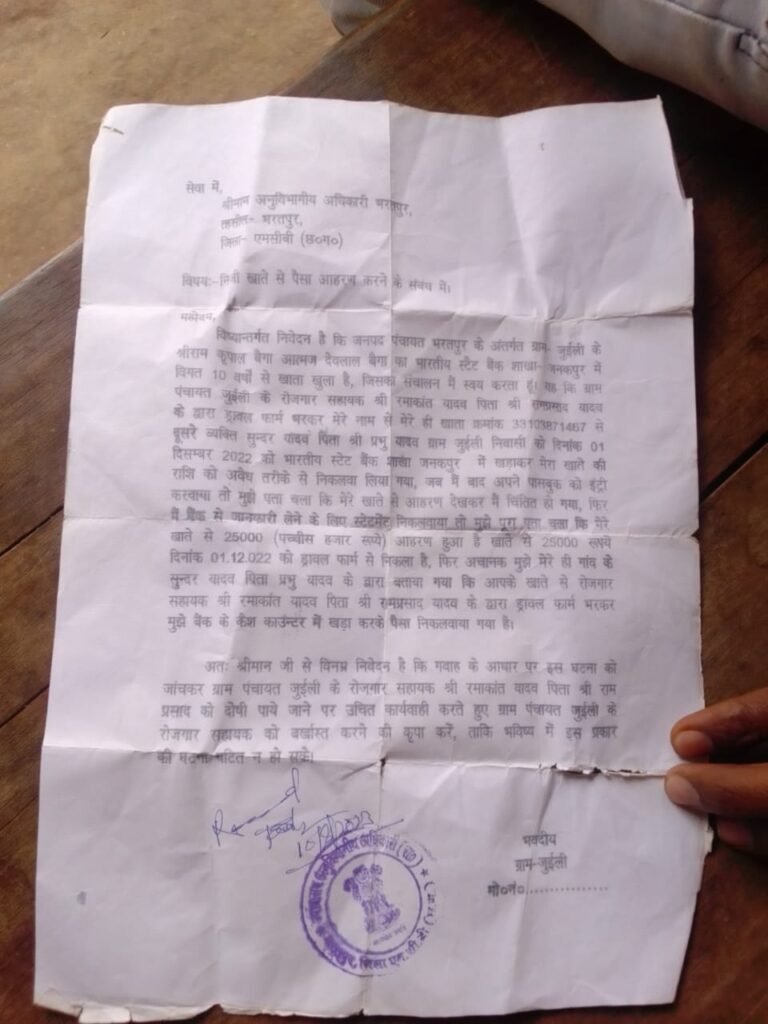 सेवा में,
श्रीमान अनुविभागीय अधिकारी भरतपुर,
तहसील- भरतपुर,
जिला- एमसीबी (छ०ग०)
विषयः-निजी खाते से पैसा आहरण करने के संबंध में।
महोदय,
विषयान्तर्गत निवेदन है कि जनपद पंचायत भरतपुर के अंतर्गत ग्राम- जुईली के
श्रीराम कृपाल बैगा आत्मज देवलाल बैगा का भारतीय स्टैट बैंक शाखा- जनकपुर में
विगत 10 वर्षों से खाता खुला है, जिसका संचालन मैं स्वयं करता हूं। यह कि ग्राम
पंचायत जुईली के रोजगार सहायक श्री रमाकांत यादव पिता श्री रामप्रसाद यादव
के द्वारा ड्रावल फार्म भरकर मेरे नाम से मेरे ही खाता क्रमांक 33103871467 से
दूसरे व्यक्ति सुन्दर यादव पिता श्री प्रभु यादव ग्राम जुईली निवासी को दिनांक 01
दिसम्बर 2022 को भारतीय स्टेट बैंक शाखा जनकपुर में खड़ाकर मेरा खाते की
राशि को अवैध तरीके से निकलवा लिया गया, जब मैं बाद अपने पासबुक को इंट्री
करवाया तो मुझे पता चला कि मेरे खाते से आहरण देखकर मैं चिंतित हो गया, फिर
मैं बैंक से जानकारी लेने के लिए स्टेटमेंट निकलवाया तो मुझे पूरा पता चला कि मेरे
खाते से 25000 (पच्चीस हजार रूपये) आहरण हुआ है खाते से 25000 रूपये
दिनांक 01.12.022 को ड्रावल फार्म से निकला है, फिर अचानक मुझे मेरे ही गांव के
सुन्दर यादव पिता प्रभु यादव के द्वारा बताया गया कि आपके खाते से रोजगार
सहायक श्री रमाकांत यादव पिता श्री रामप्रसाद यादव के द्वारा ड्रावल फार्म भरकर
मुझे बैंक के कैश काउंन्टर में खड़ा करके पैसा निकलवाया गया है।
अतः श्रीमान जी से विनम्र निवेदन है कि गवाह के आधार पर इस घटना को
जांचकर ग्राम पंचायत जुईली के रोजगार सहायक श्री रमाकांत यादव पिता श्री राम
प्रसाद को दोषी पाये जाने पर उचित कार्यवाही करते हुए ग्राम पंचायत जुईली के
रोजगार सहायक को बर्खास्त करने की कृपा करें, ताकि भविष्य में इस प्रकार
की घटना घटित न हो सके।
भवदीय
ग्राम-जुईली
मो०नं०................
अनुविभागीय अधिकारी (रा०)
जिला एम.सी.बी.